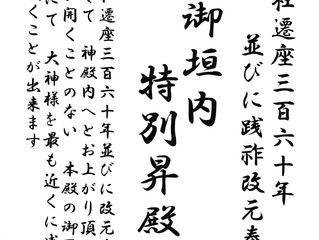 社遷座三百六十年
並びに践祚改元奉
御垣内
特別昇殿
遷座三百六十年並びに改元
て 神殿内へとお上がり頂
開くことのない 本殿の御
にて 大神様を最も近くに
くことが出来ます